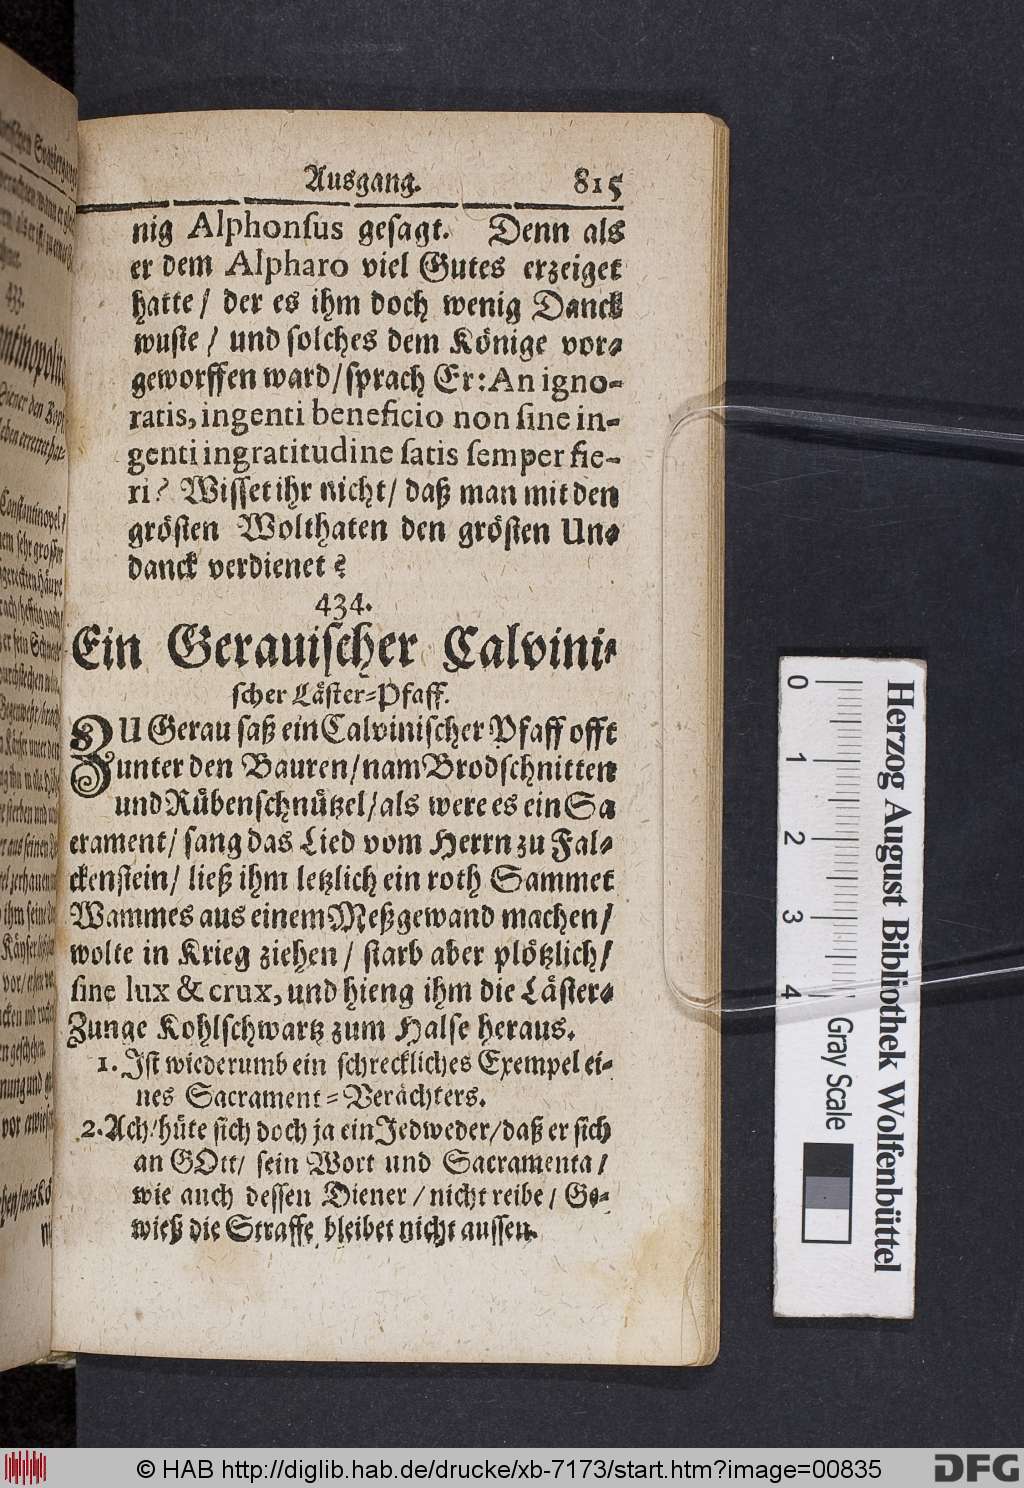 Ausgang. 815
nig Alphonſus geſagt. Denn als
er dem Alpharo viel Gutes erzeiget
hatte / der es ihm doch wenig Danck
wuſte / und ſolches dem Könige vor-
geworffen ward / ſprach Er: An igno-
ratis, ingenti beneficio non ſine in-
genti ingratitudine ſatis ſemper fie-
ri? Wiſſet ihr nicht / daß man mit den
gröſten Wolthaten den gröſten Un-
danck verdienet?
434.
Ein Gerauiſcher Calvini-
ſcher Läſter-Pfaff.
ZU Gerau ſaß ein Calviniſcher Pfaff offt
unter den Bauren / nam Brodſchnitten
und Rübenſchnützel / als were es ein Sa
crament / ſang das Lied vom Herrn zu Fal-
ckenſtein / ließ ihm letzlich ein roth Sammet
Wammes aus einem Meßgewand machen /
wolte in Krieg ziehen / ſtarb aber plötzlich /
ſine lux & crux, und hieng ihm die Läſter-
Zunge Kohlſchwartz zum Halſe heraus.
1. Iſt wiederumb ein ſchreckliches Exempel ei-
nes Sacrament-Verächters.
2. Ach / hüte ſich doch ja ein Jedweder / daß er ſich
an GOtt / ſein Wort und Sacramenta /
wie auch deſſen Diener / nicht reibe / Ge-
wieß die Straffe bleibet nicht auſſen.
433.
0 1 2 3 4
Herzog August Bibliothek Wolfenbüttel
Gray Scale
© HAB http://diglib.hab.de/drucke/xb-7173/start.htm?image=00835
DFG